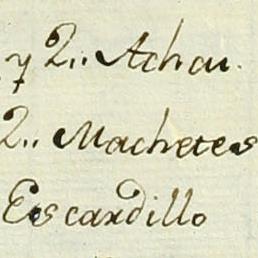 y 2,, Achas.
2,, Machetes
Escardillo